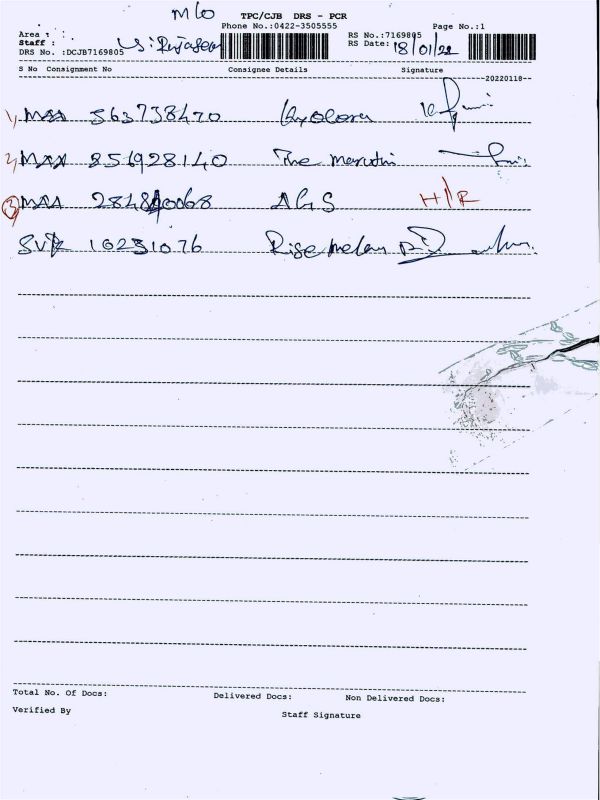 M10
TPC/CJB DRS - PCR
Phone No.:0422-3505555 Page No.:1
Area :
Staff :
RS No.:7169805
DRS No. :DCJB7169805 RS Date: 18/01/22
S No Consignment No Consignee Details Signature
20220118
1) MAA 563738470
2) MAA 856928140 The Maruthi
3) MAA 0068 AGS H/R
10231076 Rise
Total No. Of Docs: Delivered Docs: Non Delivered Docs:
Verified By Staff Signature